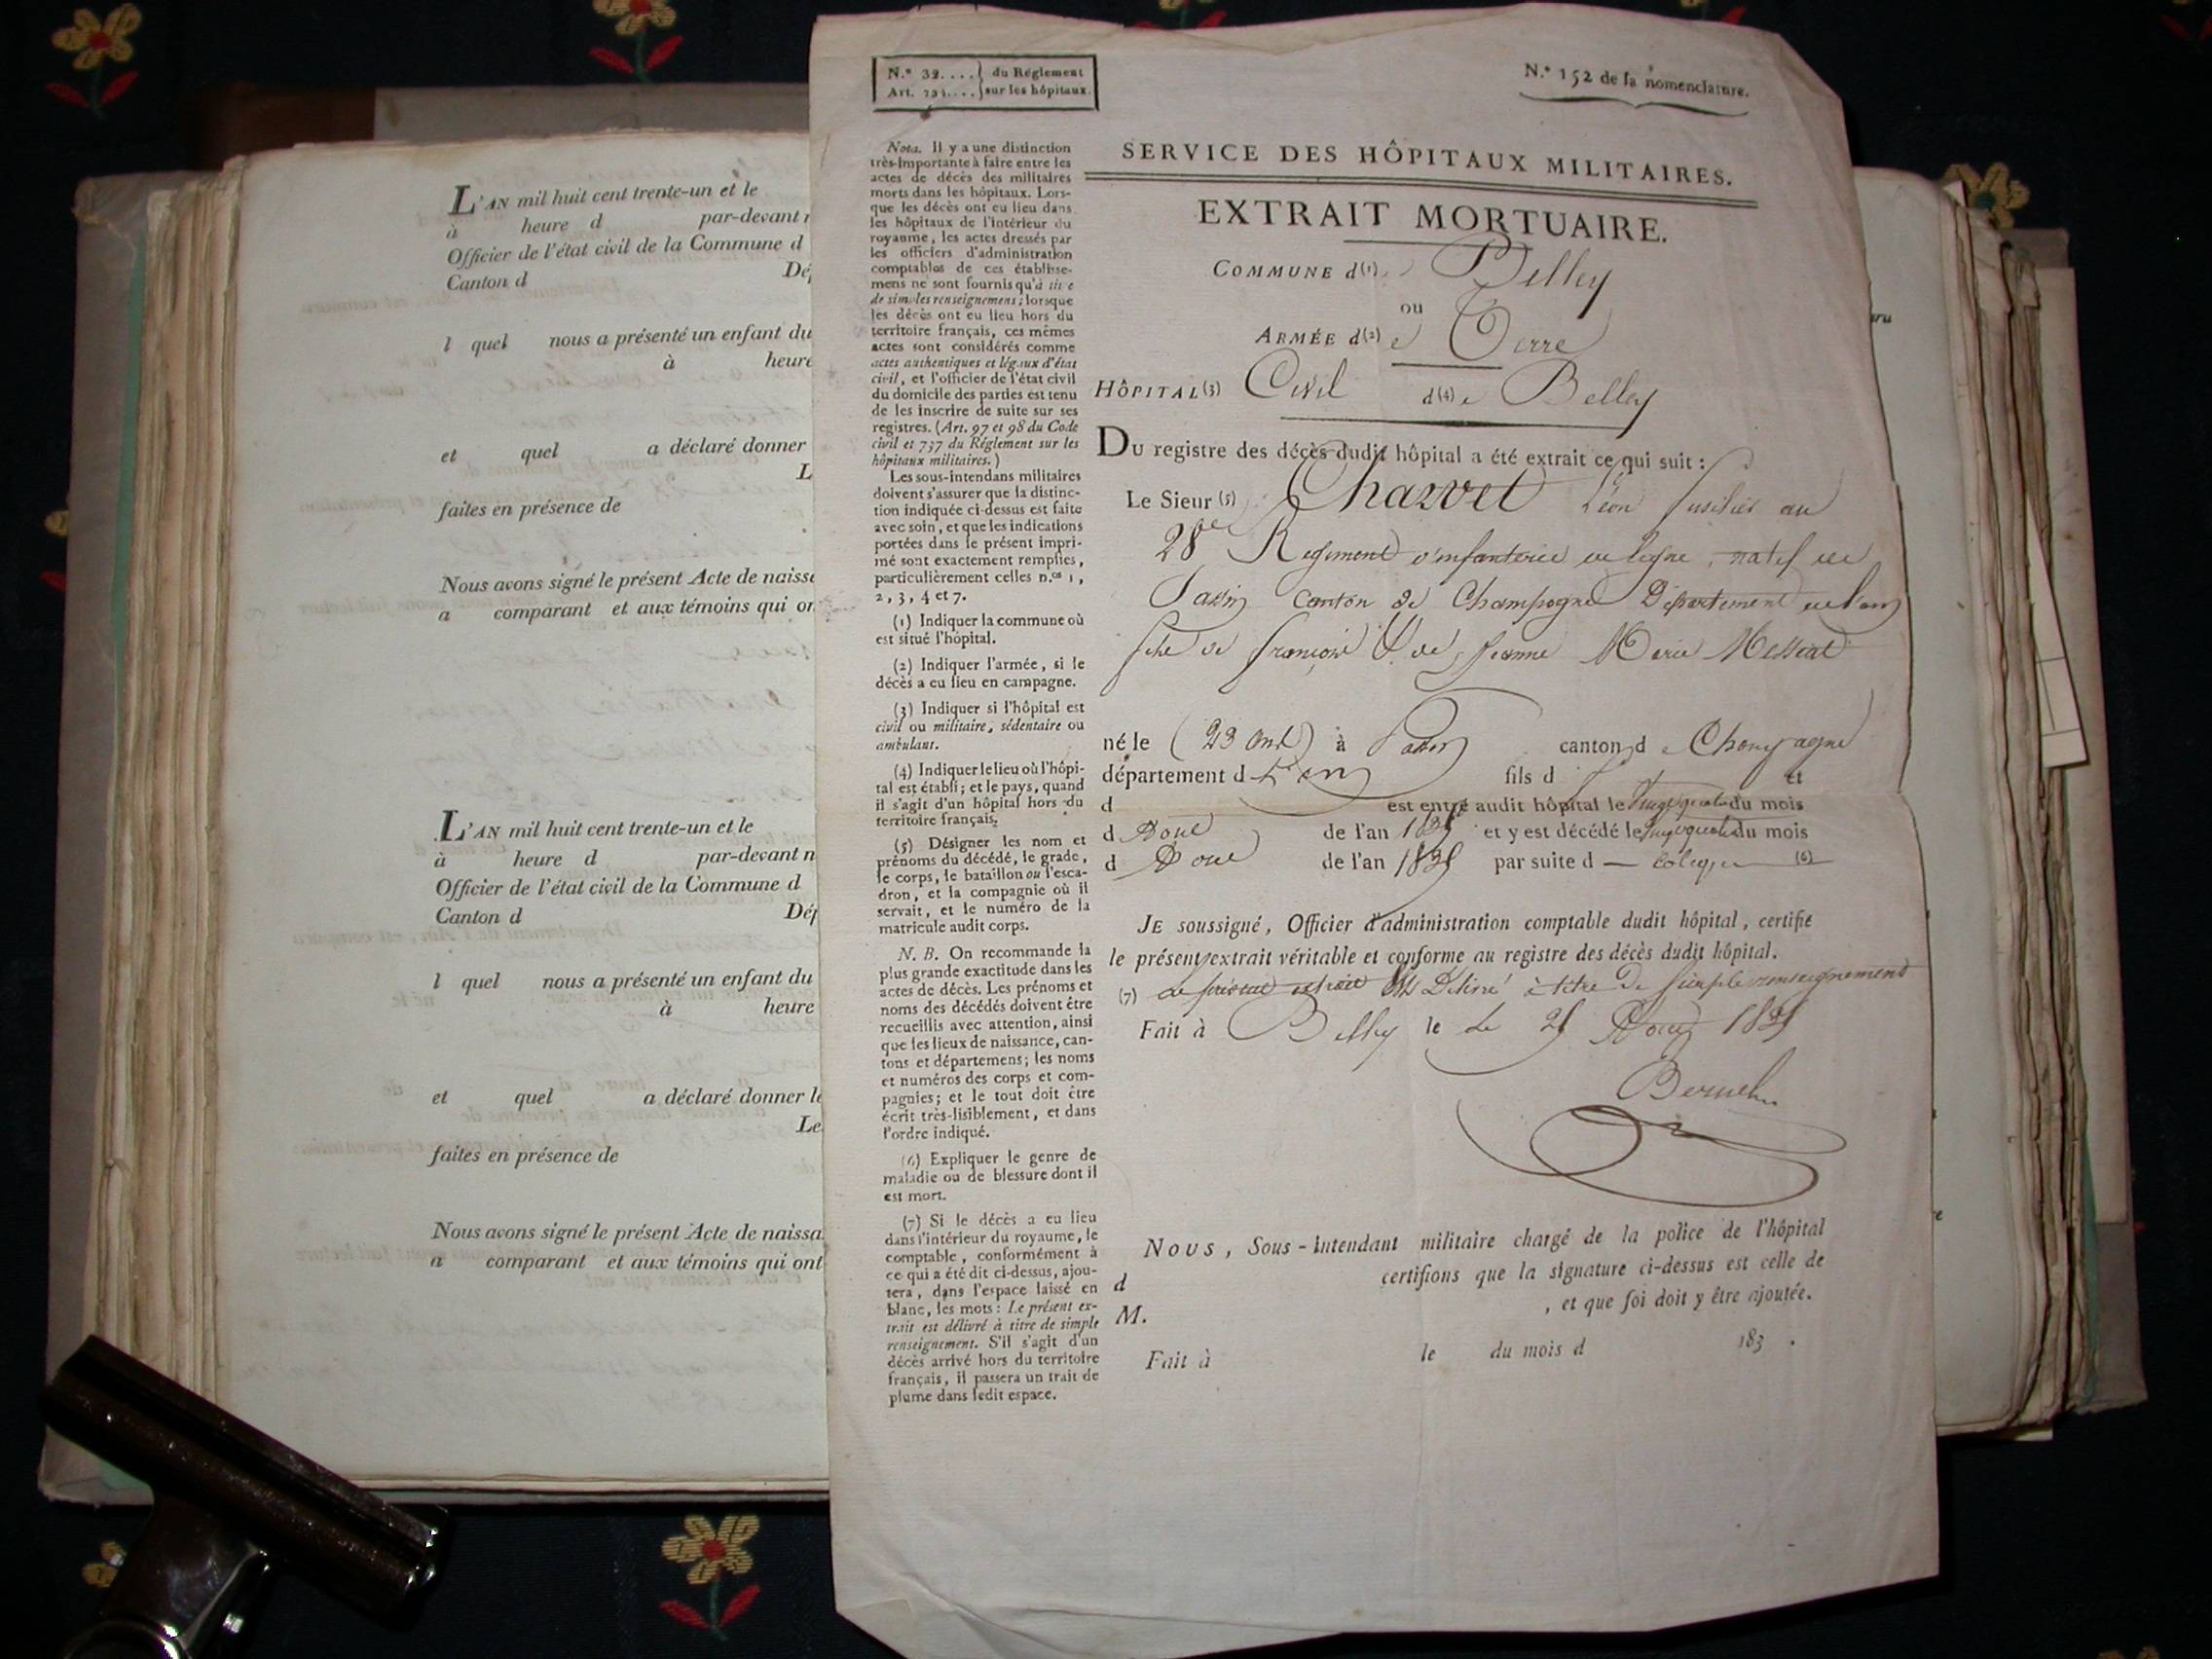 L'AN mil huit cent trente-un et le
à heure d par-devant
Officier de l'état civil de la Commune d
Canton d Dé
l quel nous a présenté un enfant du
à heure
et quel a déclaré donner
L
faites en présence de
Nous avons signé le présent Acte de naiss
a comparant et aux témoins qui on
L'AN mil huit cent trente-un et le
à heure d par-devant n
Officier de l'état civil de la Commune d
Canton d Dép
l quel nous a présenté un enfant du
à heure
et quel a déclaré donner le
Le
faites en présence de
Nous avons signé le présent Acte de naissa
a comparant et aux témoins qui ont
N.° 32.... du Réglement
Art. .... sur les hôpitaux.
N.° 152 de la nomenclature.
Nota. Il y a une distinction
très-importante à faire entre les
actes de décès des militaires
morts dans les hôpitaux. Lors-
que les décès ont eu lieu dans
les hôpitaux de l'intérieur du
royaume, les actes dressés par
les officiers d'administration
comptables de ces établisse-
mens ne sont fournis qu'à titre
de simples renseignemens; lorsque
les décès ont eu lieu hors du
territoire français, ces mêmes
actes sont considérés comme
actes authentiques et légaux d'état
civil, et l'officier de l'état civil
du domicile des parties est tenu
de les inscrire de suite sur ses
registres. (Art. 97 et 98 du Code
civil et 737 du Réglement sur les
hôpitaux militaires.)
Les sous-intendans militaires
doivent s'assurer que la distinc-
tion indiquée ci-dessus est faite
avec soin, et que les indications
portées dans le présent impri-
mé sont exactement remplies,
particulièrement celles n.os 1,
2, 3, 4 et 7.
(1) Indiquer la commune où
est situé l'hôpital.
(2) Indiquer l'armée, si le
décès a eu lieu en campagne.
(3) Indiquer si l'hôpital est
civil ou militaire, sédentaire ou
ambulant.
(4) Indiquer le lieu où l'hôpi-
tal est établi; et le pays, quand
il s'agit d'un hôpital hors du
territoire français.
(5) Désigner les nom et
prénoms du décédé, le grade,
le corps, le bataillon ou l'esca-
dron, et la compagnie où il
servait, et le numéro de la
matricule audit corps.
N. B. On recommande la
plus grande exactitude dans les
actes de décès. Les prénoms et
noms des décédés doivent être
recueillis avec attention, ainsi
que les lieux de naissance, can-
tons et départemens; les noms
et numéros des corps et com-
pagnies; et le tout doit être
écrit très-lisiblement, et dans
l'ordre indiqué.
(6) Expliquer le genre de
maladie ou de blessure dont il
est mort.
(7) Si le décès a eu lieu
dans l'intérieur du royaume, le
comptable, conformément à
ce qui a été dit ci-dessus, ajou-
tera, dans l'espace laissé en
blanc, les mots: Le présent ex-
trait est délivré à titre de simple
renseignement. S'il s'agit d'un
décès arrivé hors du territoire
français, il passera un trait de
plume dans ledit espace.
SERVICE DES HÔPITAUX MILITAIRES.
EXTRAIT MORTUAIRE.
COMMUNE d(1) Belley
ou
ARMÉE d(2) e Terre
HÔPITAL(3) Civil d(4) e Belley
DU registre des décès dudit hôpital a été extrait ce qui suit :
Le Sieur (5) Charvet Léon fusilier au
28e Régiment d'infanterie de ligne, natif de
canton de Champagne Département de l'ain
fils de françois & de Jeanne Marie
né le (23 ans) à canton d e Champagne
département d L'ain fils d et
d est entré audit hôpital le du mois
d Aout de l'an et y est décédé le du mois
d Aout de l'an par suite d (6)
JE soussigné, Officier d'administration comptable dudit hôpital, certifie
le présent extrait véritable et conforme au registre des décès dudit hôpital.
(7) Le présent extrait est Délivré à titre De simple renseignement
Fait à Belley le Le Aout
NOUS, Sous-Intendant militaire chargé de la police de l'hôpital
d certifions que la signature ci-dessus est celle de
M. , et que foi doit y être ajoutée.
Fait à le du mois d 183 .